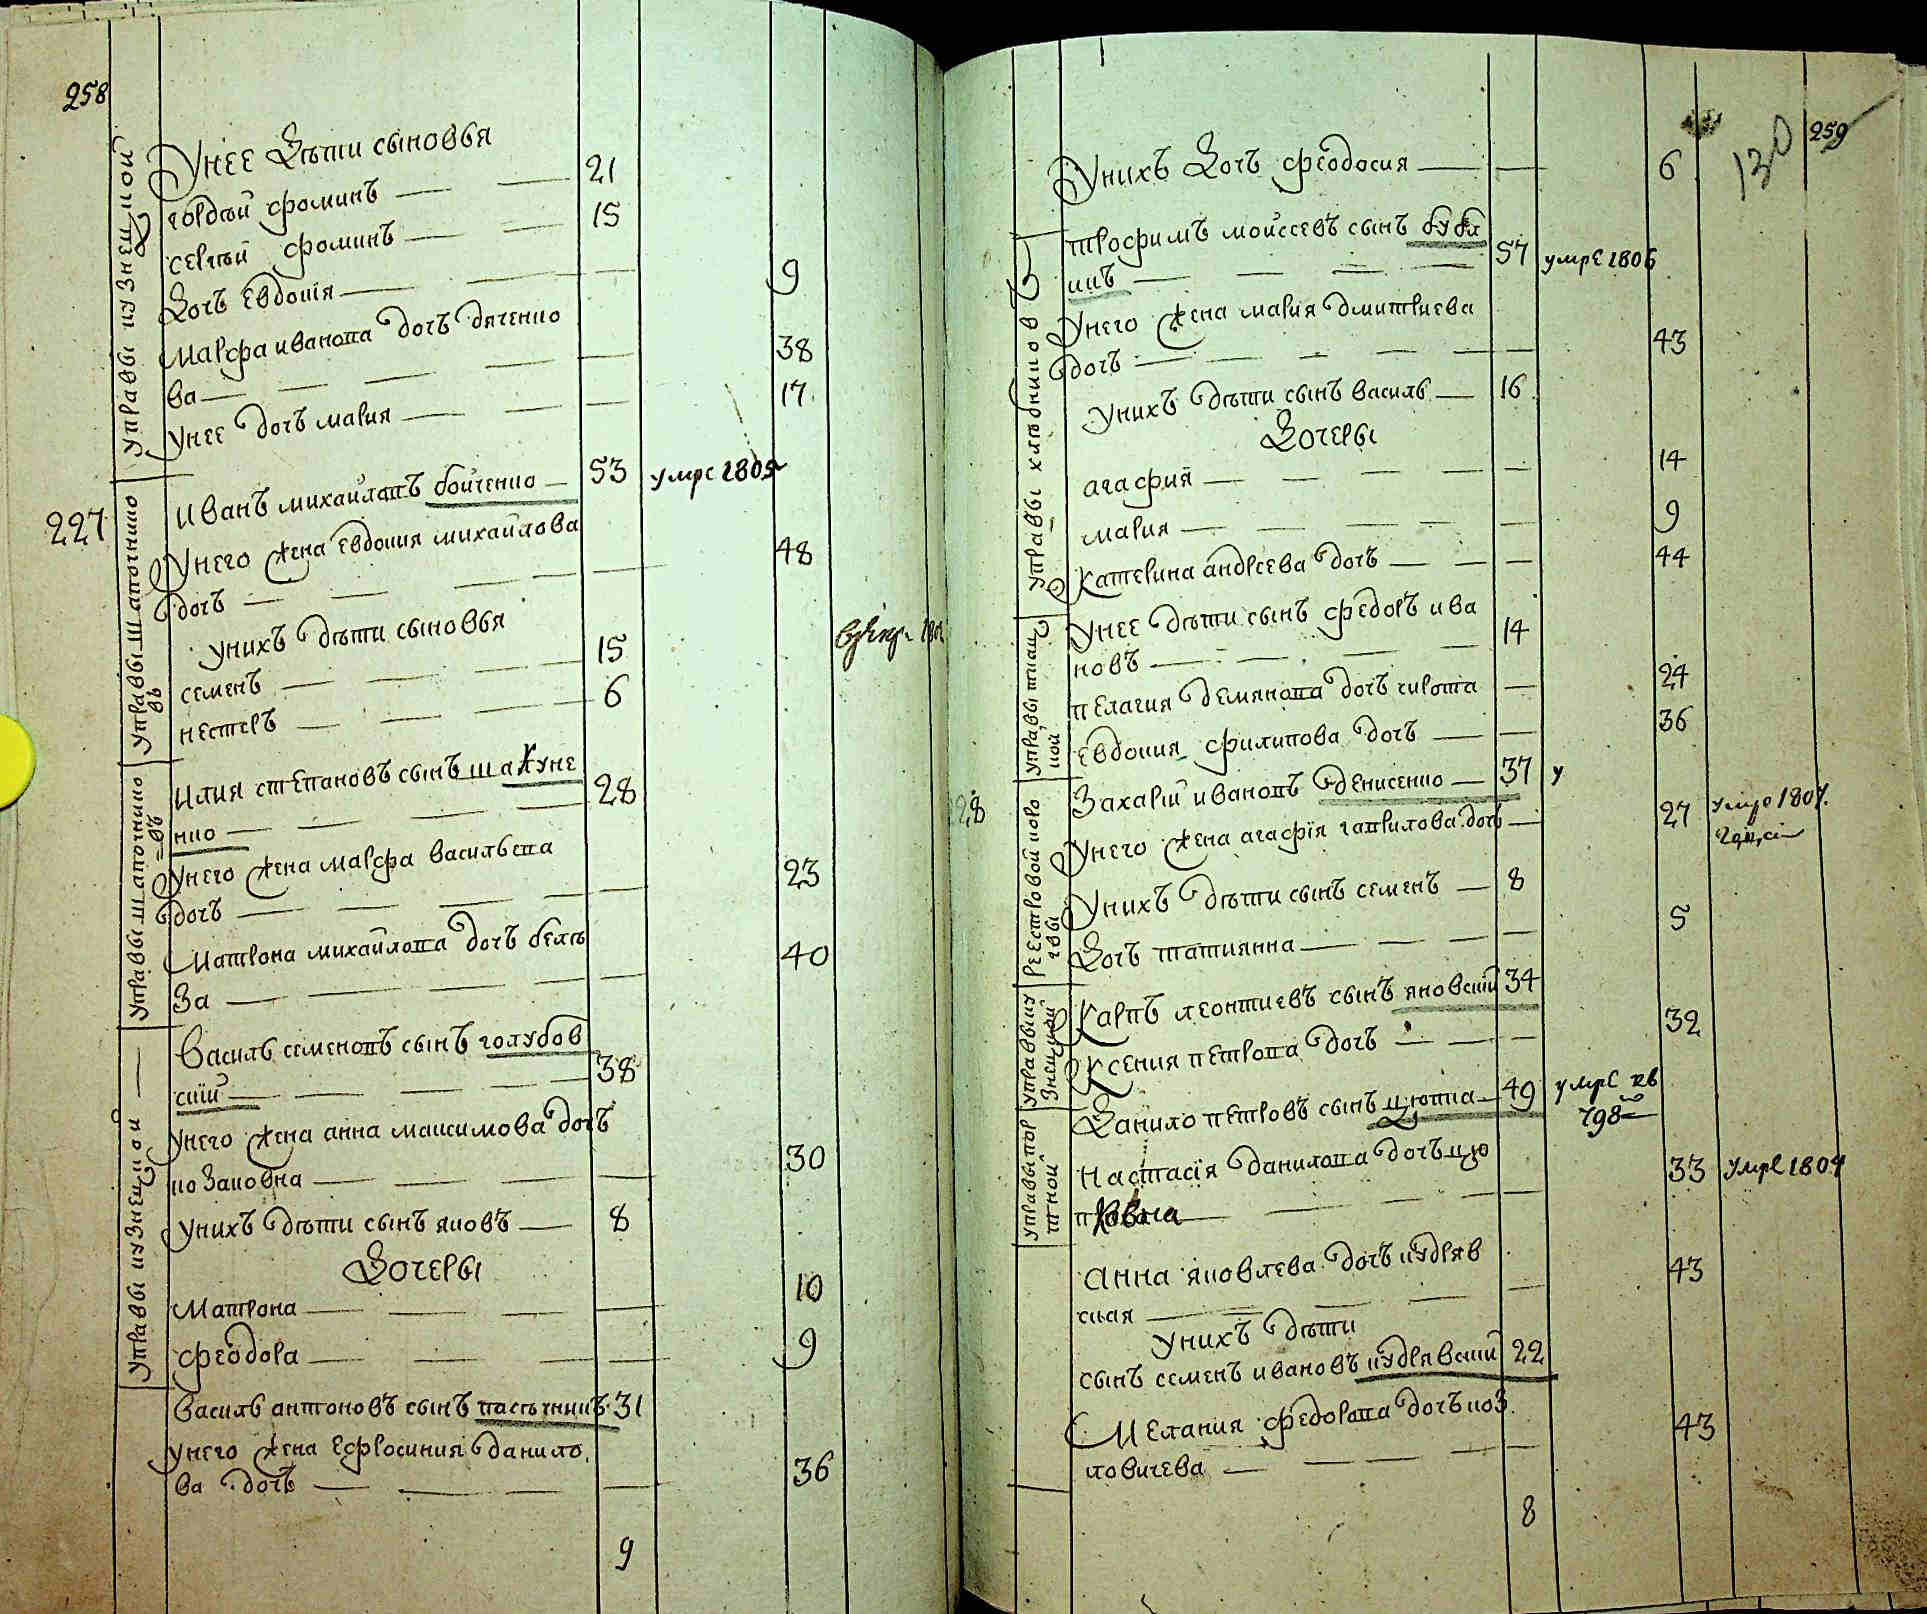 258
Управы кузнецкой
Унее Дѣти сыновья
гордѣй фоминъ — — 21
сергѣй фоминъ — — 15
Дочь Евдокія — — — 9
Марфа иванова дочь дяченко
ва — — — — — 38
Унее дочь мария — — — 17
227
Управы шапочнико
въ
Иванъ михайловъ бойченко — 53 умре 1805
Унего жена Евдокия михайлова
дочь — — — — — 48
Унихъ дѣти сыновья
семенъ — — — — 15
нестеръ — — — — 6
Управы шапочнико
=въ
Илия степановъ сынъ шахуне
нко — — — — 28
Унего жена марфа васильева
дочь — — — — — 23
Матрона михайлова дочь белѣ
за — — — — — 40
Управы кузнецкой —
Василь семеновъ сынъ голубов
скій — — — — 38
Унего жена анна максимова дочь
козаковна — — — — 30
Унихъ дѣти сынъ яковъ — 8
Дочеры
Матрона — — — — 10
феодора — — — — 9
Василь антоновъ сынъ пасѣчникъ 31
Унего жена Ефросиния данило
ва дочь — — — — 36
9
259
130
Унихъ Дочь феодосия — — 6
Управы хлѣбнико въ
трофимъ моисеевъ сынъ бубл
икъ — — — — 57 умре 1806
Унего жена мария дмитриева
дочь — — — — — 43
Унихъ дѣти сынъ василь — 16
Дочеры
агафия — — — — 14
мария — — — — 9
Катерина андреева дочь — — — 44
Управы ткац
кой
Унее дѣти сынъ федоръ ива
новъ — — — — 14
пелагия демянова дочь сирота — 24
Евдокия филипова дочь — — 36
228
Реестровой
Захарій ивановъ денисенко — 37 у
Унего жена агафія гаврилова дочь — 27 умре 1807
Унихъ дѣти сынъ семенъ — 8
Дочь татиянна — — — — 5
Управы ку
знецкой
Карпъ леонтиевъ сынъ яновский 34
Ксения петрова дочь — — — 32
Управы пор
тной
Данило петровъ сынъ цюпка — 49 умре
798
Настасія данилова дочь цю
пковна — — — — 33 умре 1804
Анна яковлева дочь кудряв
ская — — — — — 43
Унихъ дѣти
сынъ семенъ ивановъ кудрявский 22
Мелания федорова дочь коз
ловичева — — — — — 43
8